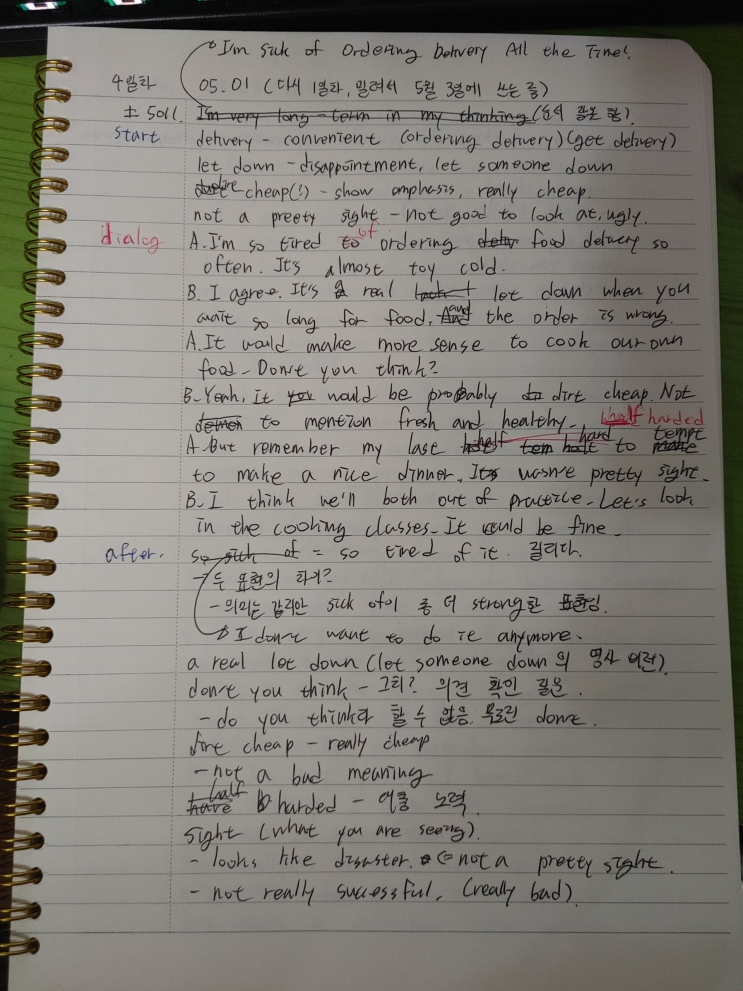 I'm sick of Ordering Delivery All the Time!
4월화 05.01 (다시 1월화, 밀려서 5월 3일에 쓰는 중)
I'm very long-term in my thinking
start delivery - convenient (ordering delivery)(get delivery)
let down - disappointment, let someone down
cheap(!) - show emphasis, really cheap.
not a preety sight - not good to look at, ugly.
dialog A. I'm so tired of ordering food delivery so
often. It's almost toy cold.
B. I agree. It's a real let down when you
wait so long for food, and the order is wrong.
A. It would make more sense to cook our own
food - Don't you think?
B. Yeah, it would be probably dirt cheap. Not
to mention fresh and healthy. half harded
A. but remember my last half hard tempt to
to make a nice dinner, It wasn't pretty sight.
B. I think we'll both out of practice. Let's look
in the cooking classes. It would be fine.
after. so sick of = so tired of it. 질리다.
- 두 표현의 차이?
- 의미는 같지만 sick of이 좀 더 strong한 표현임.
I don't want to do it anymore.
a real let down (let someone down의 명사 버전).
don't you think - 그치? 의견 확인 질문.
- do you think라 할 수 없음. 무조건 don't.
dirt cheap - really cheap
- not a bad meaning
half harded - 어줍 노력.
sight (what you are seeing).
- looks like disaster. not a pretty sight.
- not really successful, (really bad).